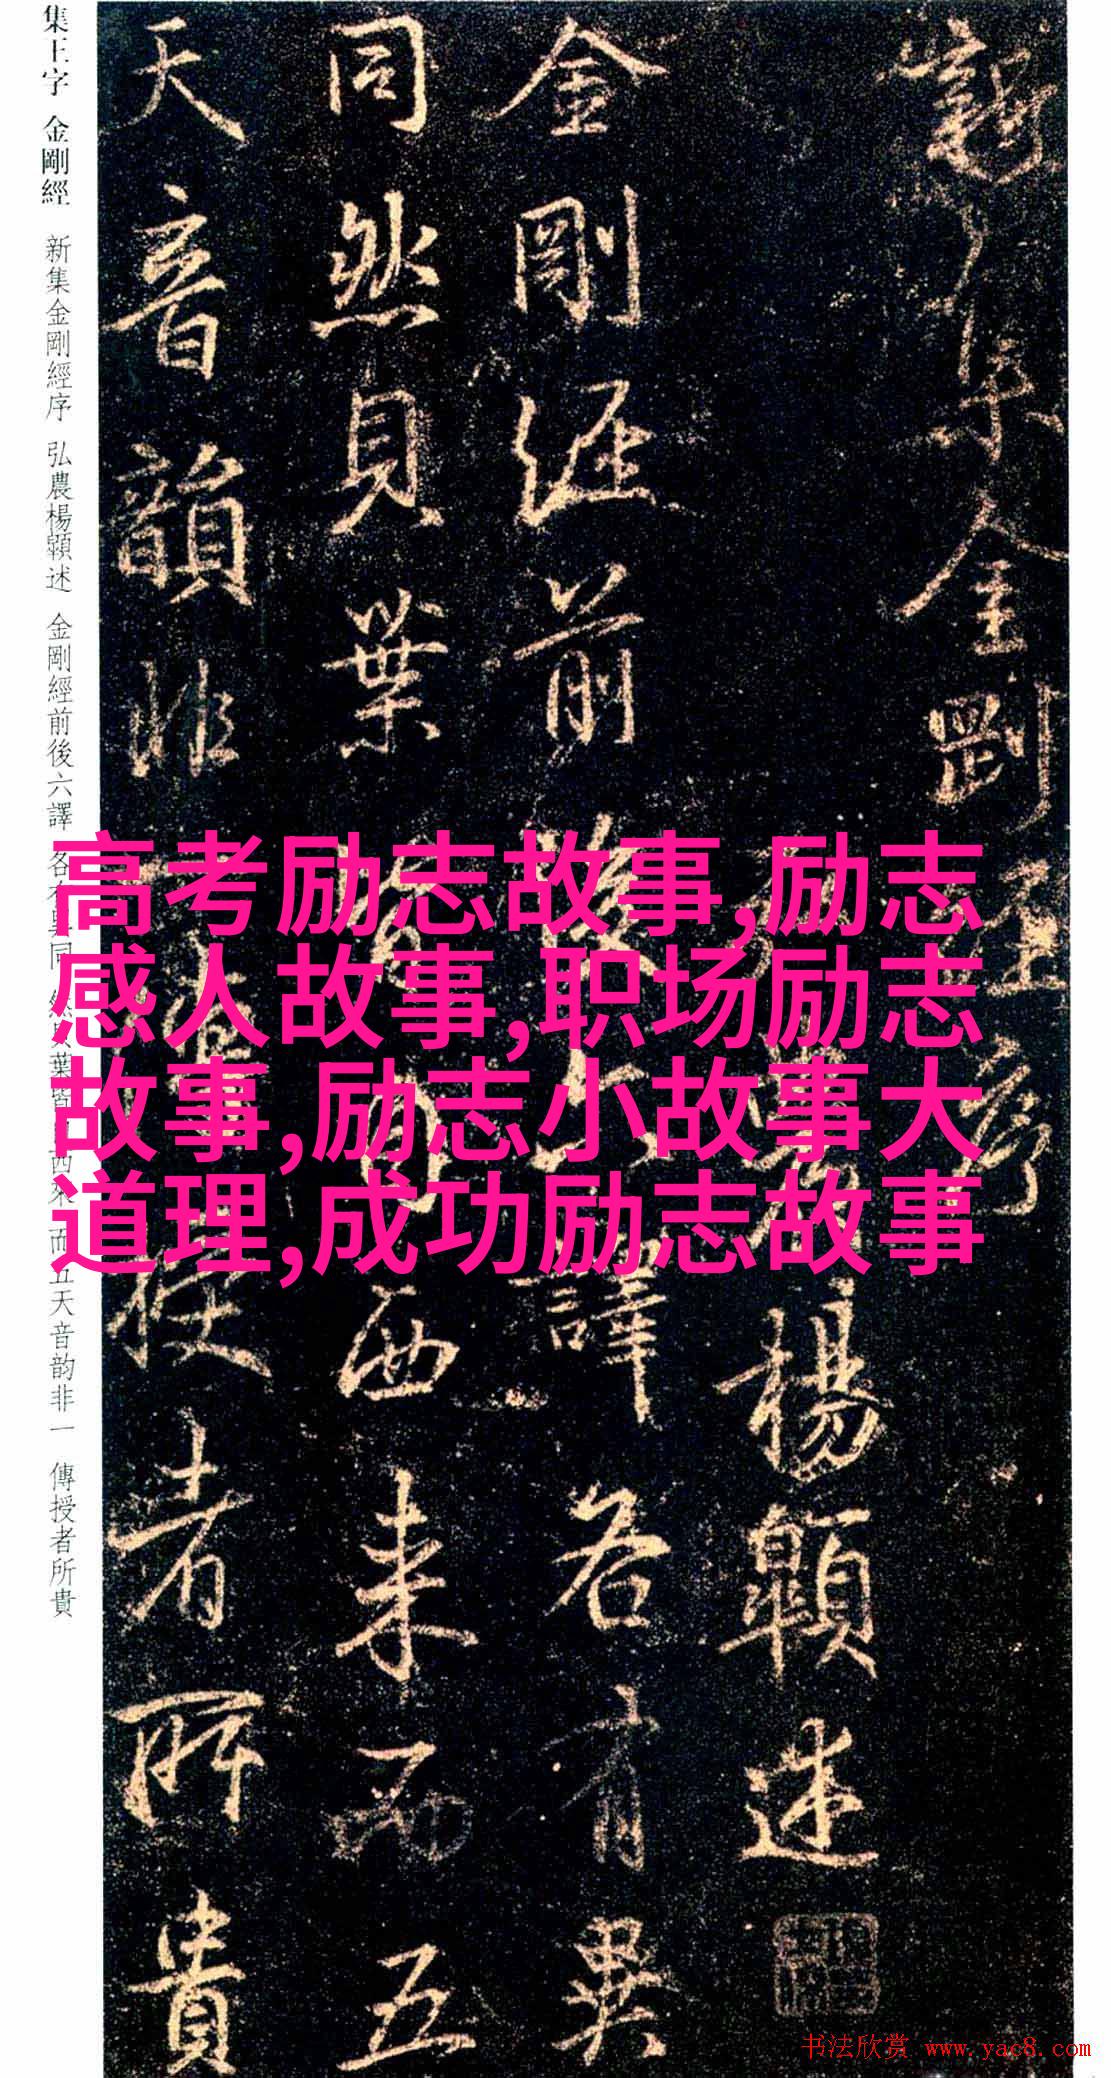 新集金剛經序
弘農楊顗述
金剛經前後六譯各有異
同然貝葉皆自西來而五
天音韻非一傳授者所貴
集王字 金剛經 新集金剛經序 弘農楊顗述 金剛經前後六譯 各有異同 然貝葉皆自西來 而五天音韵非一 傳授者所貴
高考励志故事,励志
感人故事,职场励志
故事,励志小故事大
道理,成功励志故事
书法欣赏 www.yac8.com